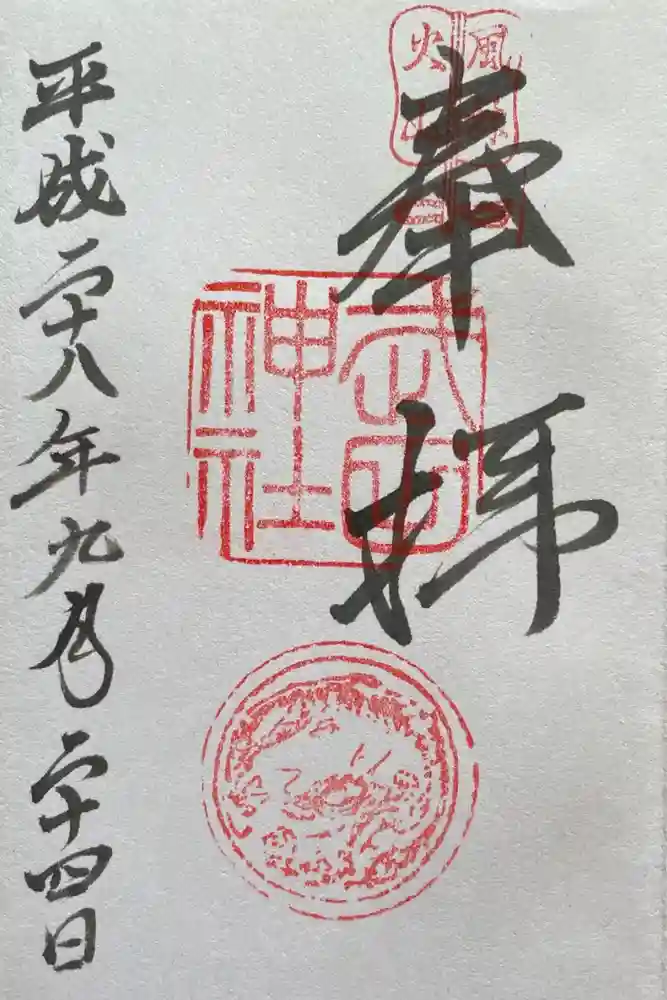 奉拝
武田
神社
平成二十八年九月二十四日